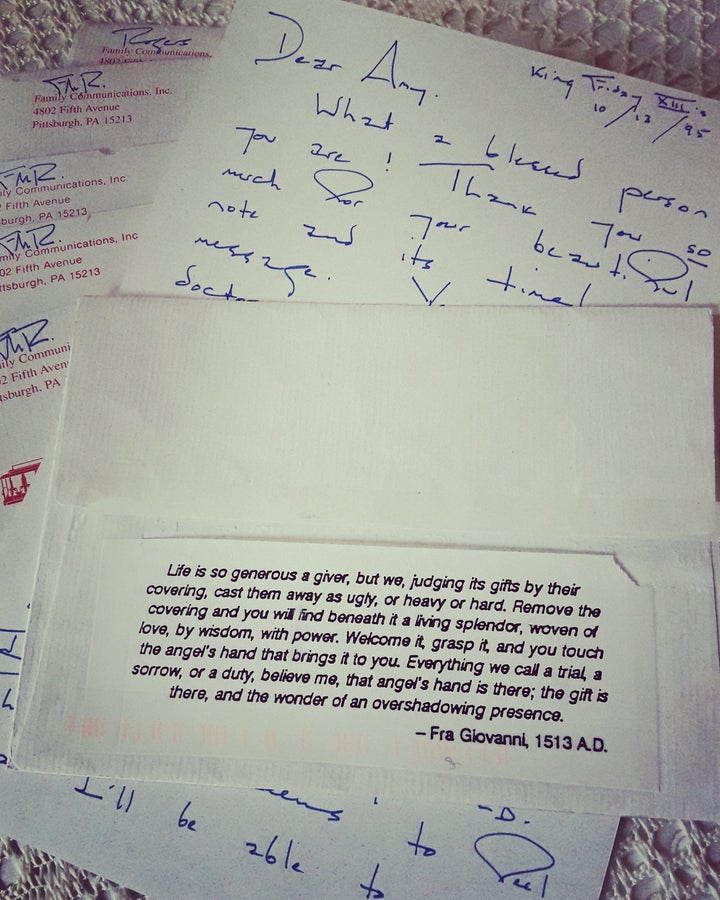 Rogers
Family Communications,
4802 Fifth
FMR.
Family Communications, Inc.
4802 Fifth Avenue
Pittsburgh, PA 15213
FMR.
ily Communications, Inc.
Fifth Avenue
burgh, PA 15213
FMR.
ily Communications, Inc
02 Fifth Avenue
ttsburgh, PA 15213
FMR.
ily Communi
2 Fifth Aven
tsburgh, PA
King Friday XIII's
10/13/95
Dear Amy.
What a blessed person
you are! Thank you so
much for your beautiful
note and its time!
message.
doct
Life is so generous a giver, but we, judging its gifts by their
covering, cast them away as ugly, or heavy or hard. Remove the
covering and you will find beneath it a living splendor, woven of
love, by wisdom, with power. Welcome it, grasp it, and you touch
the angel's hand that brings it to you. Everything we call a trial, a
sorrow, or a duty, believe me, that angel's hand is there; the gift is
there, and the wonder of an overshadowing presence.
– Fra Giovanni, 1513 A.D.
-D.
I'll be able to feel
to